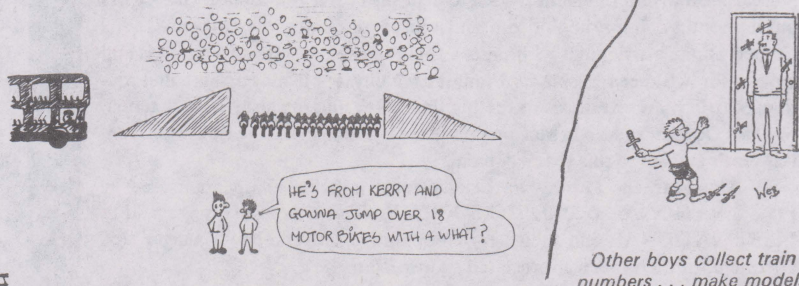 HE'S FROM KERRY AND
GONNA JUMP OVER 18
MOTOR BIKES WITH A WHAT?
WEB
Other boys collect train
numbers . . . make model